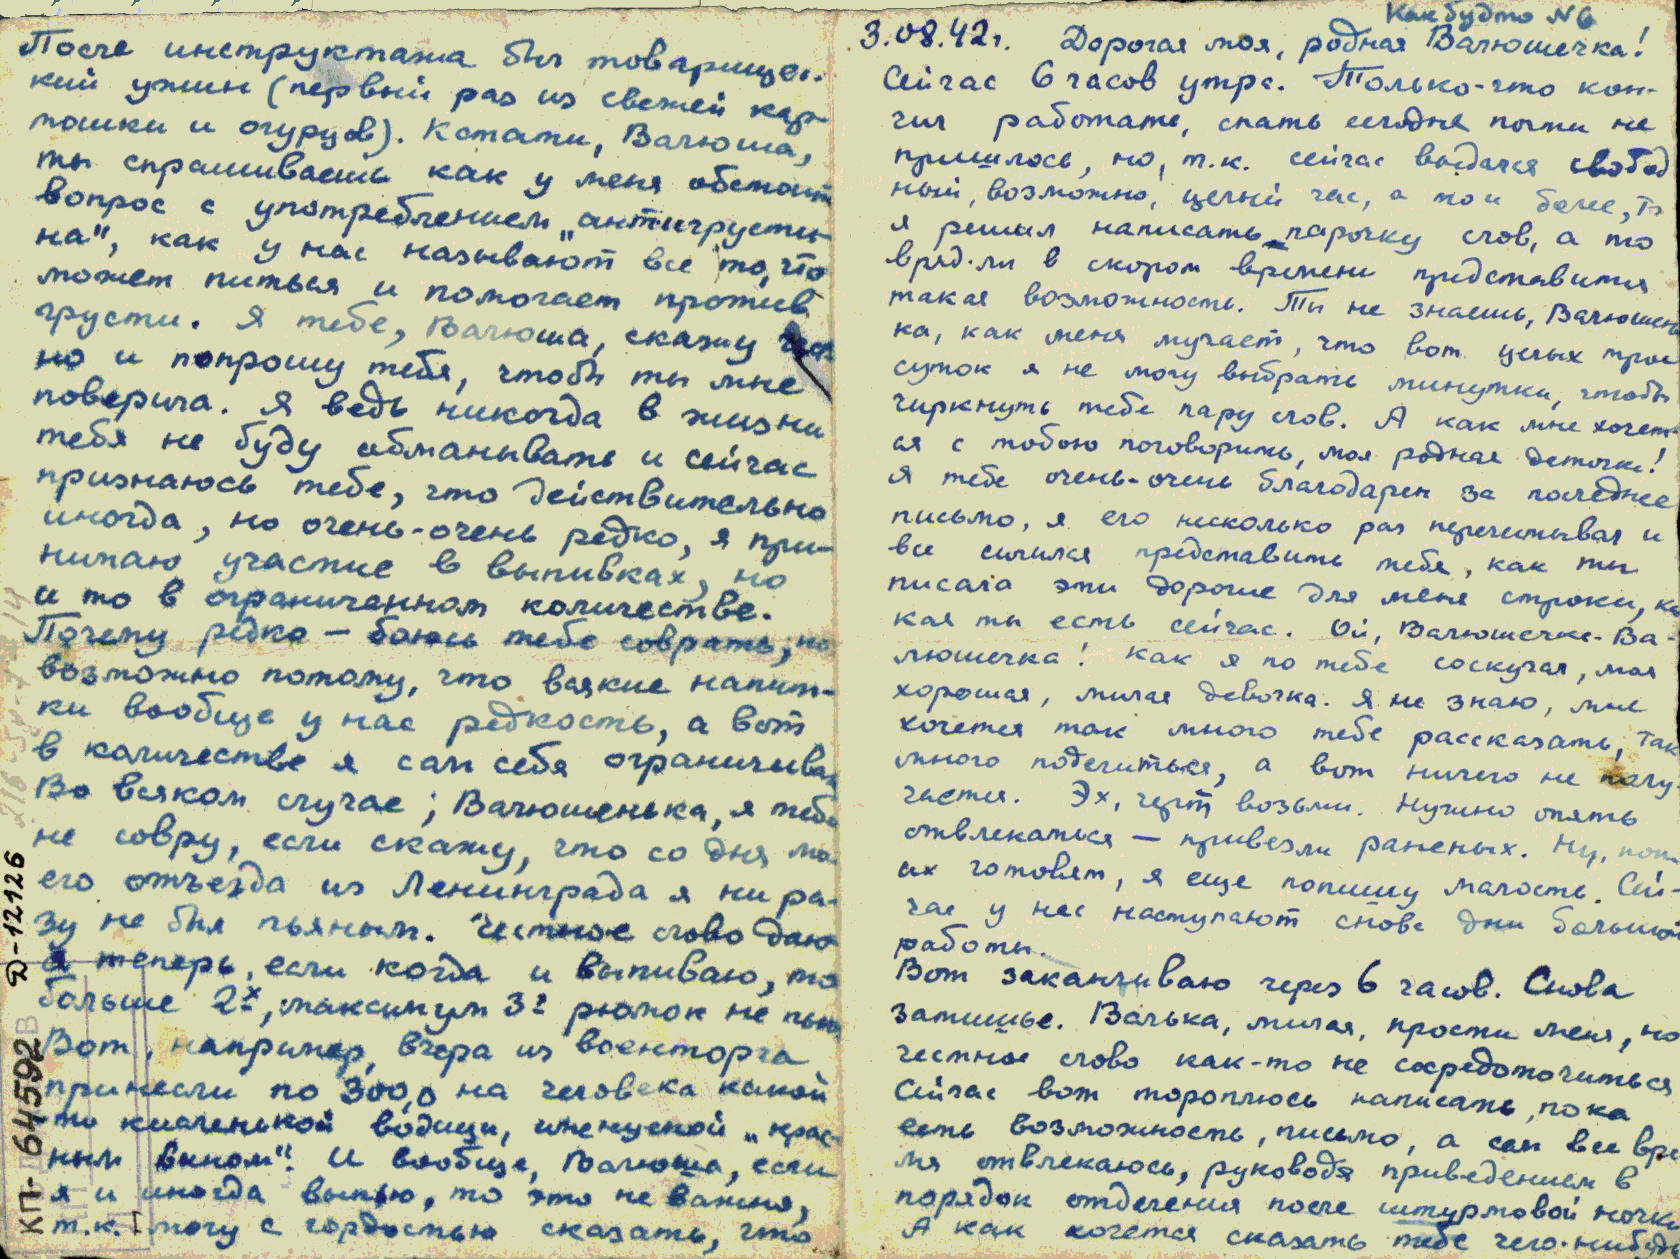 После инструктажа был товарищес-
кий ужин (первый раз из свежей кар-
тошки и огурцов). Кстати, Валюша,
ты спрашиваешь как у меня обстоит
вопрос с употреблением „антигрусти-
на", как у нас называют все то, что
может питься и помогает против
грусти. Я тебе, Валюша, скажу
но и попрошу тебя, чтобы ты мне
поверила. Я ведь никогда в жизни
тебя не буду обманывать и сейчас
признаюсь тебе, что действительно
иногда, но очень-очень редко, я при-
нимаю участие в выпивках, но
и то в ограниченном количестве.
Почему редко — боюсь тебе соврать, но
возможно потому, что всякие напит-
ки вообще у нас редкость, а вот
в количестве я сам себя ограничиваю
Во всяком случае; Валюшенька, я тебе
не совру, если скажу, что со дня мо-
его отъезда из Ленинграда я ни ра-
зу не был пьяным. Честное слово даю
а теперь, если когда и выпиваю, то
больше 2х, максимум 3х рюмок не пью
Вот, например, вчера из военторга
принесли по 300,0 на человека какой
-то кисленькой водицы, именуемой „крас-
ным вином". И вообще, Валюша, если
я и иногда выпью, то это не важно,
т.к. I могу с гордостью сказать, что
КП- 64592 Д-12126
Как будто №6
3.08.42г. Дорогая моя, родная Валюшечка!
Сейчас 6 часов утра. Только-что кон-
чил работать, спать сегодня почти не
пришлось, но, т.к. сейчас выдался свобод
ный, возможно, целый час, а то и более, то
я решил написать парочку слов, а то
вряд-ли в скором времени представится
такая возможность. Ты не знаешь, Валюшень
ка, как меня мучает, что вот целых трое
суток я не могу выбрать минутки, чтобы
чиркнуть тебе пару слов. А как мне хочет-
ся с тобою поговорить, моя родная деточка!
Я тебе очень-очень благодарен за последнее
письмо, я его несколько раз перечитывал и
все силился представить тебя, как ты
писала эти дорогие для меня строки, ка
кая ты есть сейчас. Ой, Валюшечка-Ва-
люшечка! Как я по тебе соскучал, моя
хорошая, милая девочка. Я не знаю, мне
хочется так много тебе рассказать, так
много поделиться, а вот ничего не полу-
чается. Эх, черт возьми. Нужно опять
отвлекаться — привезли раненых. Ну, пока
их готовят, я еще попишу малость. Сей-
час у нас наступают снова дни большой
работы.
Вот заканчиваю через 6 часов. Снова
затишье. Валька, милая, прости меня, но
честное слово как-то не сосредоточиться
Сейчас вот тороплюсь написать, пока
есть возможность, письмо, а сам все вре
мя отвлекаюсь, руководя приведением в
порядок отделения после штурмовой ночи
А как хочется сказать тебе чего-нибудь